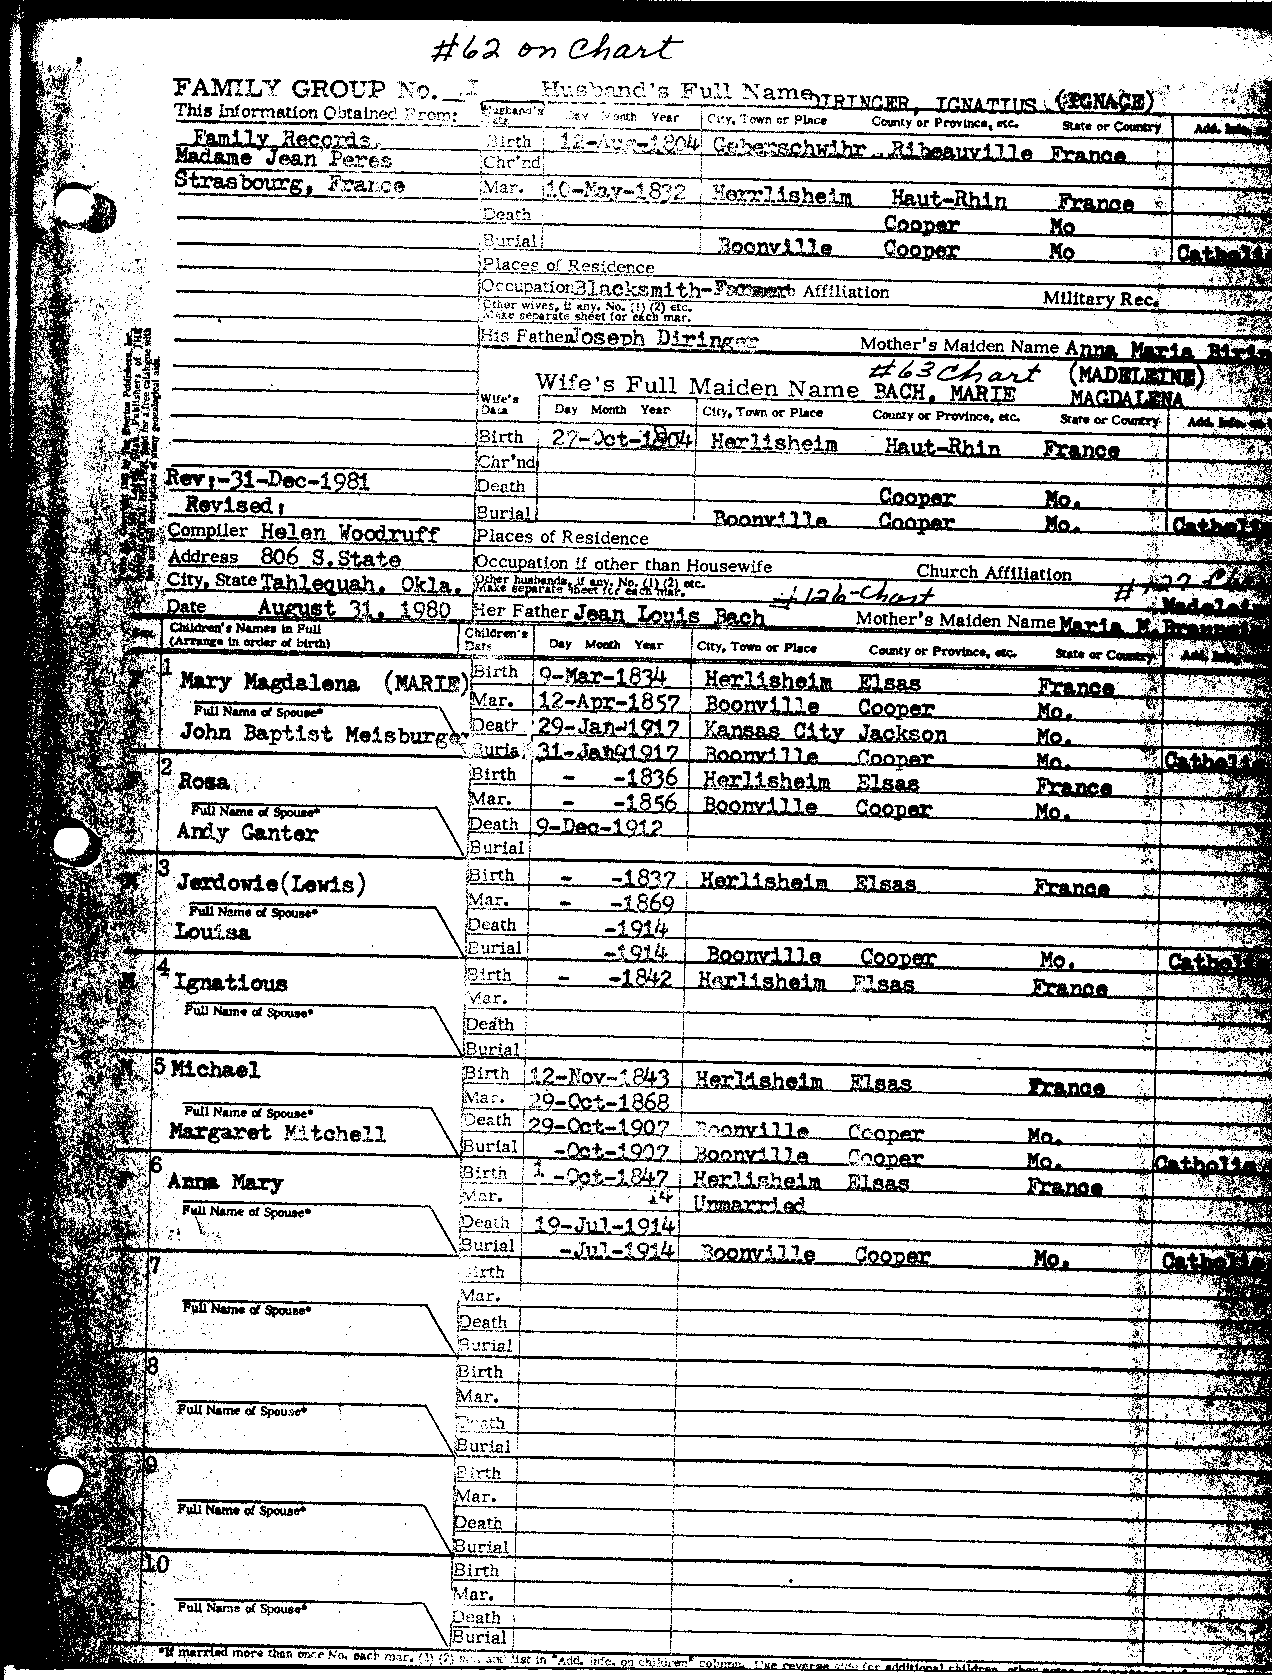 #62 on Chart
FAMILY GROUP No. I Husband's Full Name DIRINGER, IGNATIUS (IGNACE)
This Information Obtained From: Husband's Data Day Month Year City, Town or Place County or Province, etc. State or Country Add. Info.
Family Records Birth 12-Aug-1804 Geberschwihr Ribeauville France
Madame Jean Peres Chr'nd
Strasbourg, France Mar. 10-May-1832 Herrlisheim Haut-Rhin France
Death Cooper Mo
Burial Boonville Cooper Mo Catholic
Places of Residence
Occupation Blacksmith- Affiliation Military Rec.
Other wives, if any. No. (1) (2) etc.
Make separate sheet for each mar.
His Father Joseph Diringer Mother's Maiden Name Anna Maria
#63 Chart (MADELEINE)
Wife's Full Maiden Name BACH, MARIE MAGDALENA
Wife's Data Day Month Year City, Town or Place County or Province, etc. State or Country Add. Info.
Birth 27-Oct-1804 Herlisheim Haut-Rhin France
Chr'nd
Rev:-31-Dec-1981 Death Cooper Mo.
Revised: Burial Boonville Cooper Mo. Catholic
Compiler Helen Woodruff Places of Residence
Address 806 S.State Occupation if other than Housewife Church Affiliation
City, State Tahlequah, Okla. Other husbands, if any. No. (1) (2) etc. Make separate sheet for each mar. #126-Chart
Date August 31, 1980 Her Father Jean Louis Bach Mother's Maiden Name Maria M.
Sex Children's Names in Full (Arrange in order of birth) Children's Data Day Month Year City, Town or Place County or Province, etc. State or Country Add. Info.
1 Mary Magdalena (MARIE) Birth 9-Mar-1834 Herlisheim Elsas France
Full Name of Spouse* Mar. 12-Apr-1857 Boonville Cooper Mo.
John Baptist Meisburger Death 29-Jan-1917 Kansas City Jackson Mo.
Burial 31-Jan-1917 Boonville Cooper Mo. Catholic
2 Rosa Birth - -1836 Herlisheim Elsas France
Full Name of Spouse* Mar. - -1856 Boonville Cooper Mo.
Andy Ganter Death 9-Dec-1912
Burial
M 3 Jerdowie(Lewis) Birth - -1837 Herlisheim Elsas France
Full Name of Spouse* Mar. - -1869
Louisa Death -1914
Burial -1914 Boonville Cooper Mo. Catholic
M 4 Ignatious Birth - -1842 Herlisheim Elsas France
Full Name of Spouse* Mar.
Death
Burial
M 5 Michael Birth 12-Nov-1843 Herlisheim Elsas France
Full Name of Spouse* Mar. 29-Oct-1868
Margaret Mitchell Death 29-Oct-1907 Boonville Cooper Mo.
Burial -Oct-1907 Boonville Cooper Mo. Catholic
F 6 Anna Mary Birth 1 -Oct-1847 Herlisheim Elsas France
Full Name of Spouse* Mar. 14 Unmarried
Death 19-Jul-1914
Burial -Jul-1914 Boonville Cooper Mo. Catholic
7 Birth
Full Name of Spouse* Mar.
Death
Burial
8 Birth
Full Name of Spouse* Mar.
Death
Burial
9 Birth
Full Name of Spouse* Mar.
Death
Burial
10 Birth
Full Name of Spouse* Mar.
Death
Burial
*If married more than once No. each mar. (1) (2) etc. and list in "Add. info. on children" column. Use reverse side for additional children, other notes,